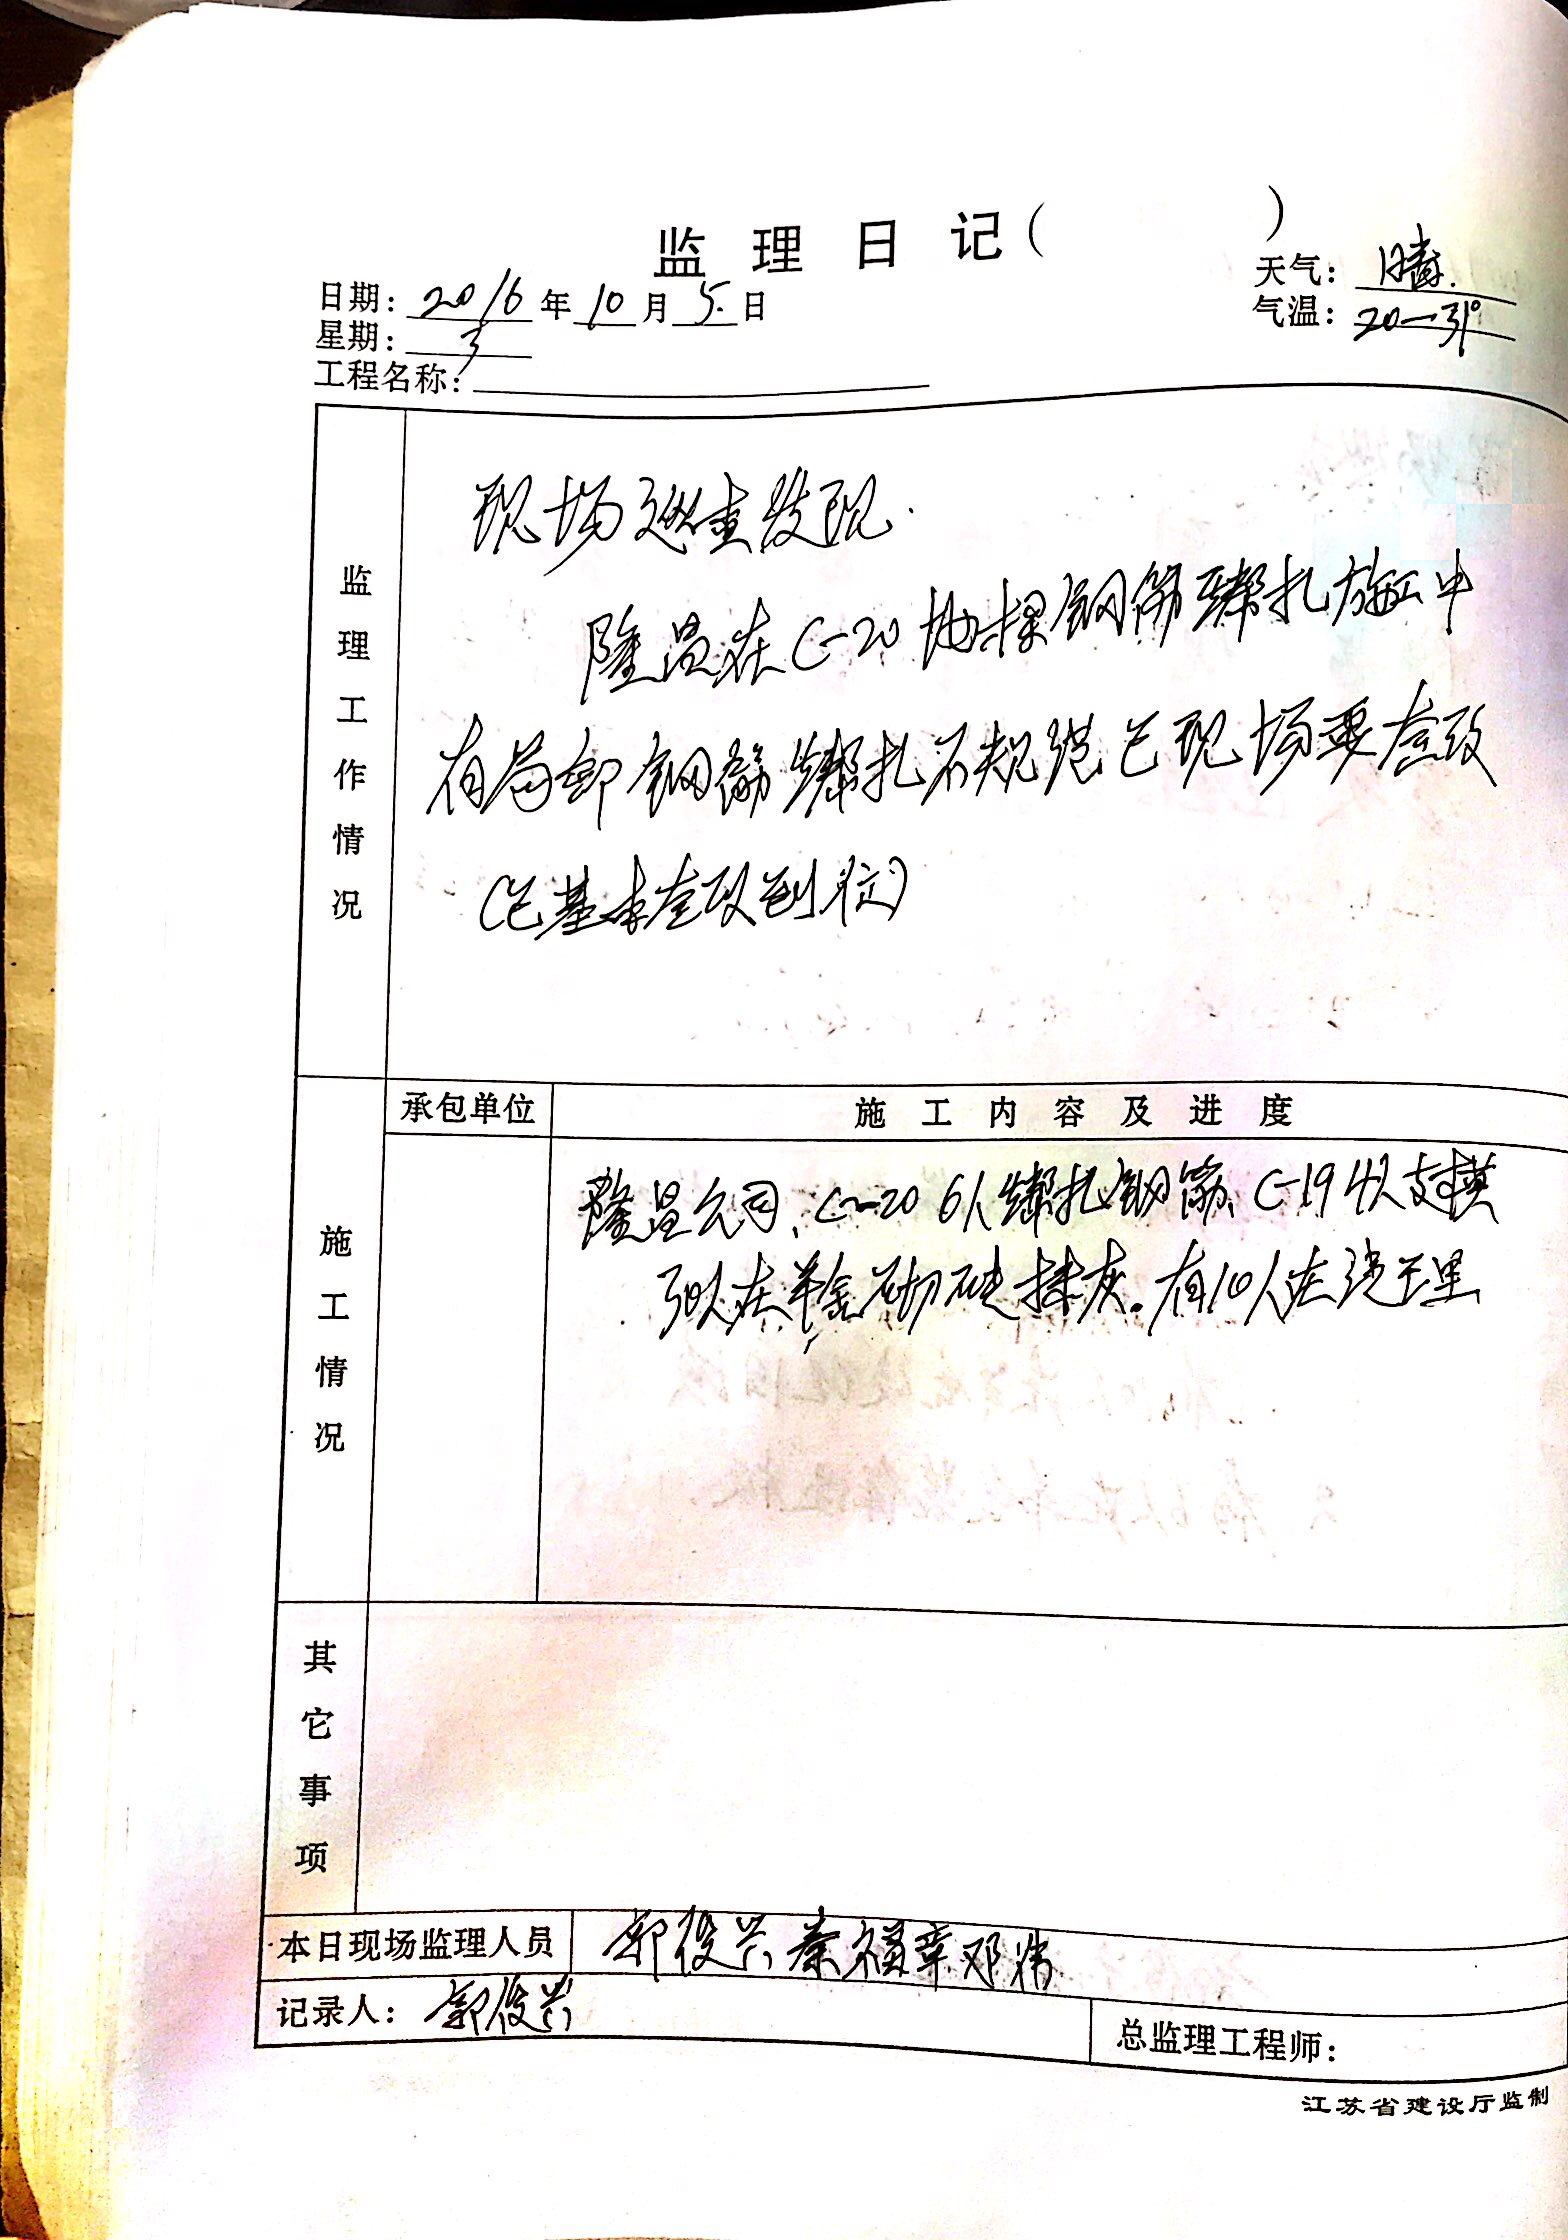 监理日记（ ）
日期：2016年10月5日
天气：晴.
星期：3
气温：20—31°
工程名称：
监理工作情况
现场巡查发现.
隆昌在C-20地梁钢筋绑扎施工中
有局部钢筋绑扎不规范已现场要查改
（已基本查改到位）
承包单位
施工内容及进度
施工情况
隆昌公司、C-20 6人绑扎钢筋、C-19 4人支模
30人在 砌砖抹灰。有10人在
其它事项
本日现场监理人员 郭俊兴 秦福章 邓炜
记录人：郭俊兴
总监理工程师：
江苏省建设厅监制